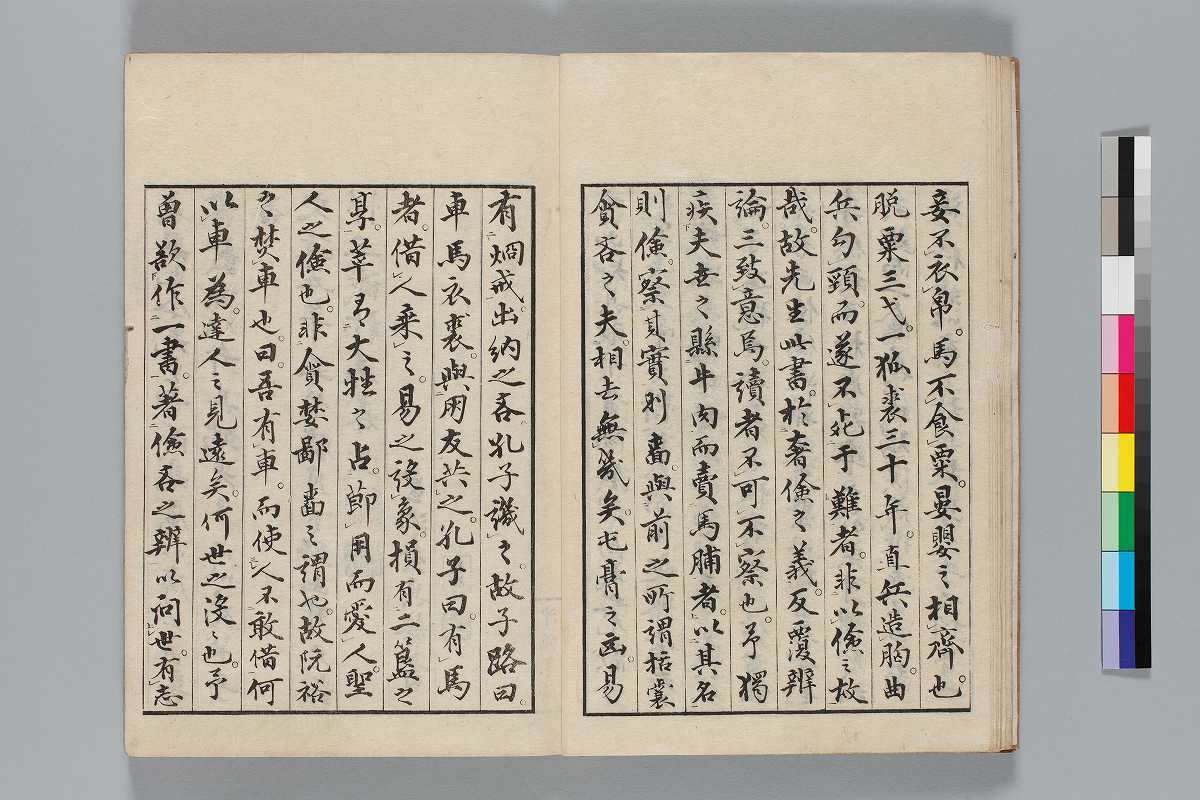 妾不衣帛。馬不食粟。晏嬰之相齊也
脱粟三弋。一狐裘三十年。直兵造胸。曲
兵勾頸。而遂不死于難者。非以儉之故
哉。故先生此書。於奢儉之義。反覆辨
論。三致意焉。讀者不可不察也。予獨
疾夫世之縣牛肉而賣馬脯者。以其名
則儉。察其實則嗇。與前之所謂括囊
貪吝之夫。相去無幾矣。屯膏之凶。易
有烱戒。出納之吝。孔子譏之。故子路曰。
車馬衣裘。與朋友共之。孔子曰。有馬
者。借人乗之。易之設象。損有二簋之
享。萃有大牲之占。節用而愛人。聖
人之儉也。非貪婪鄙嗇之謂也。故阮裕
之焚車也。曰。吾有車。而使人不敢借。何
以車為。達人之見遠矣。何世之沒沒也。予
曽欲作一書。著儉吝之辨以問世。有志